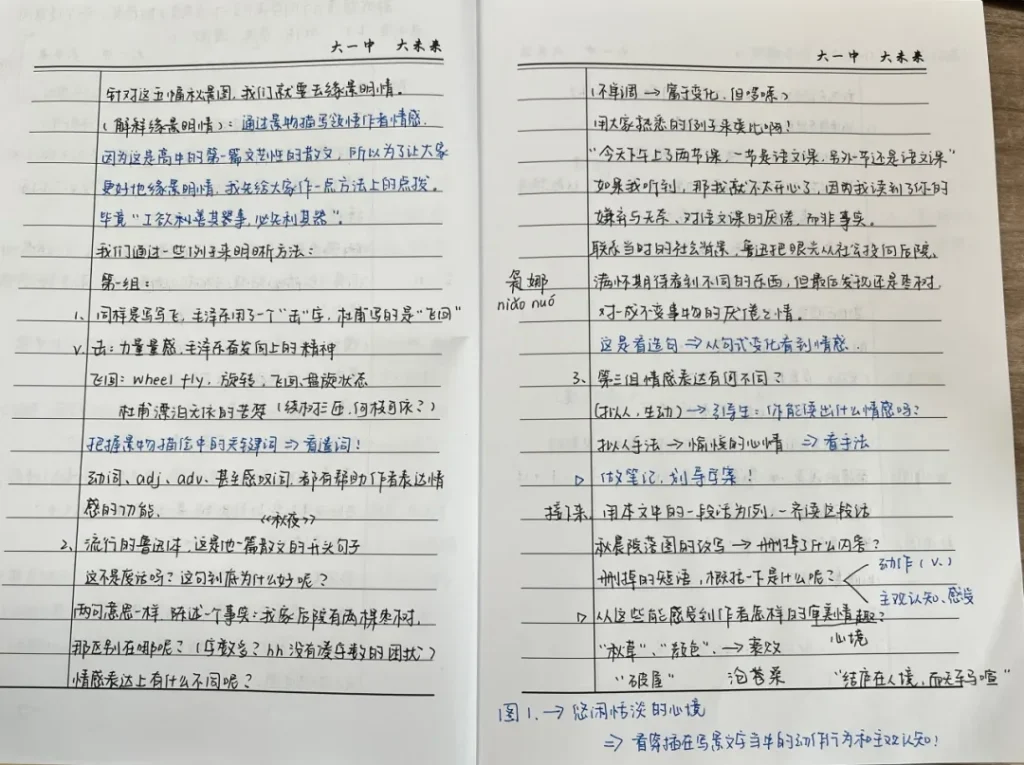 大一中 大未来
针对这五幅秋景图,我们就要去缘景明情。
(解释缘景明情):通过景物描写领悟作者情感.
因为这是高中的第一篇文艺性的散文,所以为了让大家
更好地缘景明情,我先给大家作一点方法上的点拨。
毕竟“工欲利善其器事,必先利其器”。
我们通过一些例子来明晰方法:
第一组:
1、同样是写写飞,毛泽东用了一个“击”字,杜甫写的是“飞回”
v. 击:力量量感,毛泽东奋发向上的精神
飞回:wheel fly. 旋转、飞回、盘旋状态
杜甫漂泊无依的苦楚(绕树三匝,何枝可依?)
把握景物描绘中的关键词 ⇒ 看遣词!
动词、adj、adv. 甚至感叹词,都有帮助作者表达情
感的功能、
《秋夜》
2、流行的鲁迅体,这是他一篇散文的开头句子
这不是废话吗?这句到底为什么好呢?
两句意思一样,陈述一个事实:我家后院有两棵枣树,
那区别在哪呢?(字数多?hh 没有凑字数的困扰)
情感表达上有什么不同呢?
大一中 大未来
(不单调 → 富于变化,但啰嗦)
用大家熟悉的例子来类比啊!
“今天下午上了两节课,一节是语文课,另外一节还是语文课”
如果我听到,那我就不太开心了,因为我读到了你的
嫌弃与无奈、对语文课的厌倦,而非事实。
联系当时的社会背景,鲁迅把眼光从社会投向后院,
满怀期待看到不同的东西,但最后发现还是枣树,
袅娜
niǎo nuó
对一成不变事物的厌倦之情。
这是看造句 ⇒ 从句式变化看到情感.
3、第三组情感表达有何不同?
(拟人,生动)→ 引导生:你能读出什么情感吗?
拟人手法 → 愉悦的心情 ⇒ 看手法
▷ 做笔记,划导学案!
接下来,用本文中的一段话为例,一齐读这段话
秋晨院落图的改写 → 删掉了什么内容?
删掉的短语,概括一下是什么呢?
动作(v.)
主观认知、感受
▷ 从这些能感受到作者怎样的审美情趣?
心境
“秋草”、“颜色”、→ 衰败
“破屋” 泡苍桑 “结庐在人境,而无车马喧”
图1. → 悠闲恬淡的心境
⇒ 看穿插在写景文字当中的动作行为和主观认知!